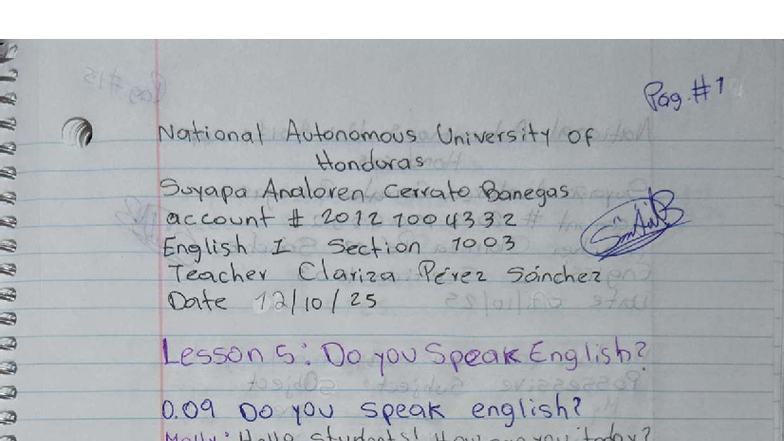 Pag. #1
National Autonomous University of
Honduras
Suyapa Analoren Cerrato Banegas
account # 20121004332
English I Section 1003
Teacher Clariza Pérez Sánchez
Date 12/10/25
Lesson 5: Do you Speak English?
0.09 Do you speak english?
Molly: Hello students! How are you today?